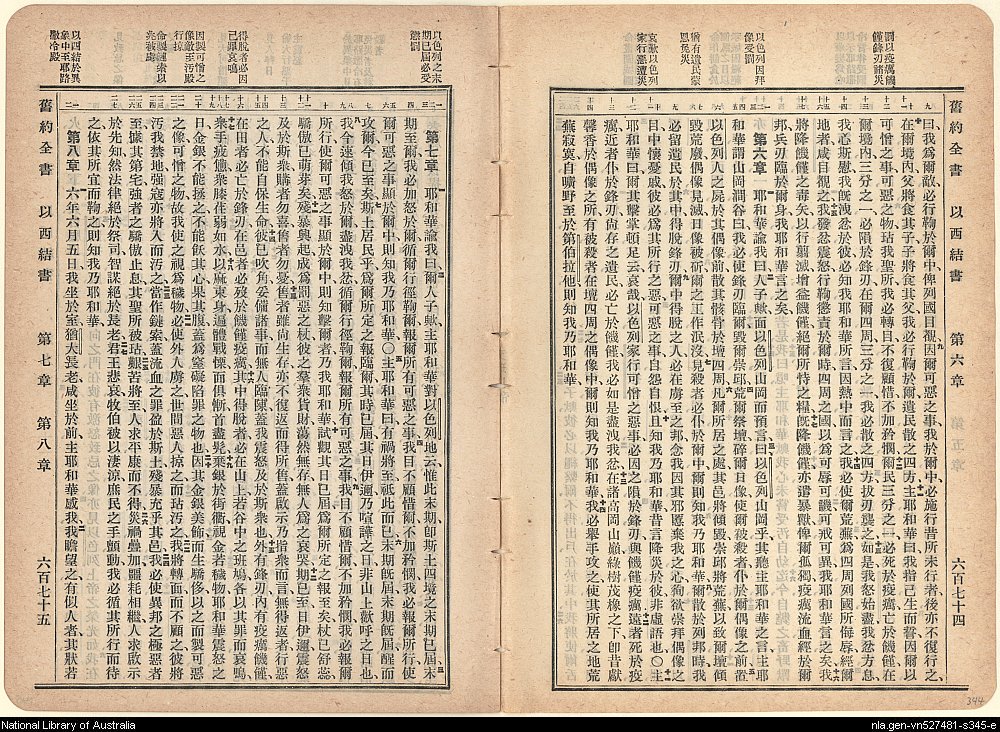 劉以疫癘饑
饉鋒刃諸災
以色列因拜
像受罰
猶有遺民蒙
恩免災
哀歎以色列
家行惡遭災
舊約全書 以西結書 第六章 六百七十四
曰我爲爾敵必行鞫於爾中俾列國目視因爾可惡之事我於爾中必施行昔所未行者後亦不復行之
在爾境內父將食其子子將食其父我必行鞫於爾遺民散之四方主耶和華曰我指己生而誓因爾以
可憎之事可惡之物玷我聖所我必轉目不復顧惜不加矜憫爾民三分之一必死於疫癘亡於饑饉在
爾境內三分之一必隕於鋒刃在爾四周三分之一我必散之四方拔刃襲之如是我怒始盡我忿方息
我心斯慰我旣洩忿於彼必知我乃耶和華所言因熱中而言之我必使爾荒蕪爲四周列國所侮辱經於爾
地者咸目覩之我發忿震怒行鞫懲責於爾時四周之國以爲可辱可譏可戒可異我耶和華言之矣我
將降饑饉之毒矢以行翦滅增益饑饉絕爾所恃之糧旣降饑饉亦遣暴獸俾爾孤獨疫癘流血經於爾
邦兵刃臨於爾身我耶和華言之矣
第六章 耶和華諭我曰人子歟面以色列山岡而預言曰以色列山岡乎其聽主耶和華之言主耶
和華謂山岡澗谷曰我必使鋒刃臨爾毀爾崇邱荒爾祭壇碎爾日像使爾被殺者仆於爾偶像之前置
以色列人之屍於其偶像前散其骸骨於壇四周凡爾所居之處其邑將傾毀崇邱將荒蕪以致爾壇傾
毀荒廢爾偶像見滅爾日像被斫爾之工作泯沒見殺者必仆於爾中爾則知我乃耶和華爾散於列邦時我
必留遺民於其中得脫鋒刃爾中得脫之人必在虜至之邦念我因其邪慝棄我之心徇欲崇拜偶像之
目中懷憂戚彼必爲其所行之惡可惡之事自怨自恨且知我乃耶和華昔言降災於彼非虛語也○主
耶和華曰爾其擊掌頓足云哀哉以色列家行可憎之惡事必因之隕於鋒刃與饑饉疫癘遠者死於疫
癘近者仆於鋒刃尚存之遺民必亡於饑饉我必如是盡洩我忿在諸高岡山巔綠樹茂橡之下卽昔獻
馨香於偶像之所有被殺者在壇四周之偶像中爾則知我乃耶和華我必舉手攻之使其所居之地荒
蕪寂寞自曠野至於第伯拉他則知我乃耶和華
以色列之末
期已屆必受
懲罰
得脫者必因
己罪哀鳴
因製可憎之
像敵至汚殿
行掠
命製鏈索以
兆被虜
以西結於異
象中至耶路
撒冷殿
第七章 耶和華諭我曰爾人子歟主耶和華對以色列地云惟此末期卽斯土四境之末期已屆末
期至爾我必加怒於爾循爾行徑鞫爾報爾所有可惡之事我目不顧惜爾不加矜憫我必報爾所行使
爾可惡之事顯於爾中爾則知我乃耶和華○主耶和華曰有禍將至祇此而已末期旣屆末期旣屆醒而
攻爾今已至矣斯土居民乎爲爾所定之報臨爾其時已屆其日伊邇乃喧譁之日非山上歡呼之日也
我今速傾我怒於爾盡洩我忿循爾行徑鞫爾報爾所有可惡之事我目不顧惜爾不加矜憫我必報爾
所行使爾可惡之事顯於爾中則知擊爾者乃我耶和華試觀其日已屆爲爾所定之報至矣杖已舒蕊
驕傲已萌芽矣殘暴興起成爲罰惡之杖彼之羣衆貨財蕩然無存無人爲之哀哭期已至日伊邇震怒
及於斯衆購者勿喜售者勿憂售者雖尚生存亦不復返而得所售蓋啟示乃指衆而言無得返者行惡
之人不能自保生命彼已吹角妥備諸事而無人臨陳蓋我震怒及於斯衆也外有鋒刃內有疫癘饑饉
在田者必亡於鋒刃在邑者必歿於饑饉疫癘其中得脫者必在山上若谷中之班鳩各以其罪而哀鳴
衆手疲憊衆膝荏弱如水以麻束身遍體戰慄而俱慚首盡髡棄銀於街衢視金若穢物耶和華震怒之
日金銀不能拯之不能飫其心果其腹蓋爲窒礙陷罪之物也因其金銀美飾而生驕侈以之而製可惡
之像可憎之物故我使之視爲穢物必使外人虜之世間惡人掠之而玷汚之我將轉面而不顧之彼將
汚我禁地強寇亦將入而汚之當作鏈索蓋流血之罪盈於斯土殘暴充乎其邑我必使異邦之極惡者
至據其第宅強者之驕傲止息其聖所被玷艱苦將至人求平康而不得災禍疊加噩耗相繼人求啟示
於先知然法律絕於祭司智謀絕於長老君王悲哀牧伯被以淒涼庶民之手顫動我必循其所行而待
之依其所宜而鞫之則知我乃耶和華
第八章 六年六月五日我坐於室猶大長老咸坐於前主耶和華感我我瞻望之有似人者其狀若
舊約全書 以西結書 第七章 第八章 六百七十五
344
National Library of Australia
nla.gen-vn527481-s345-e